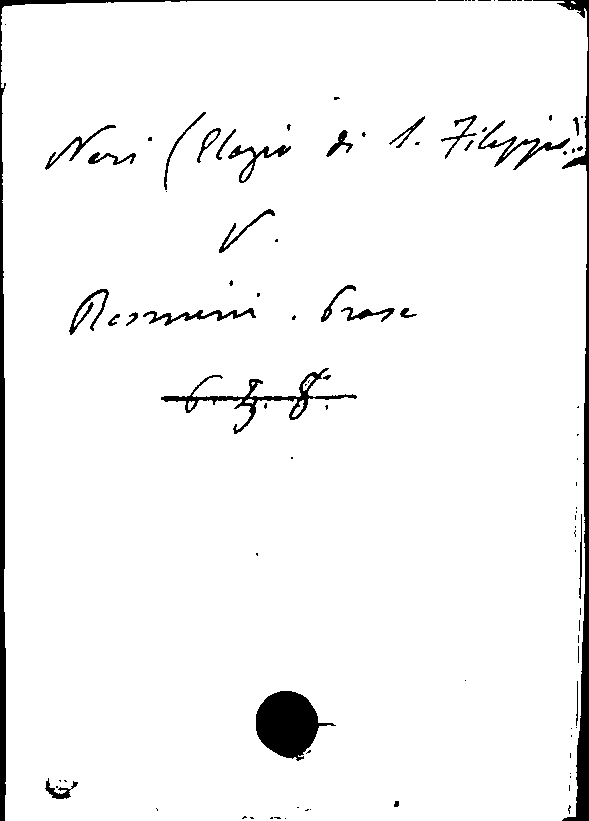 Neri (Elogio di S. Filippo)
V.
Rosmini. Prose
6. 3. 8.